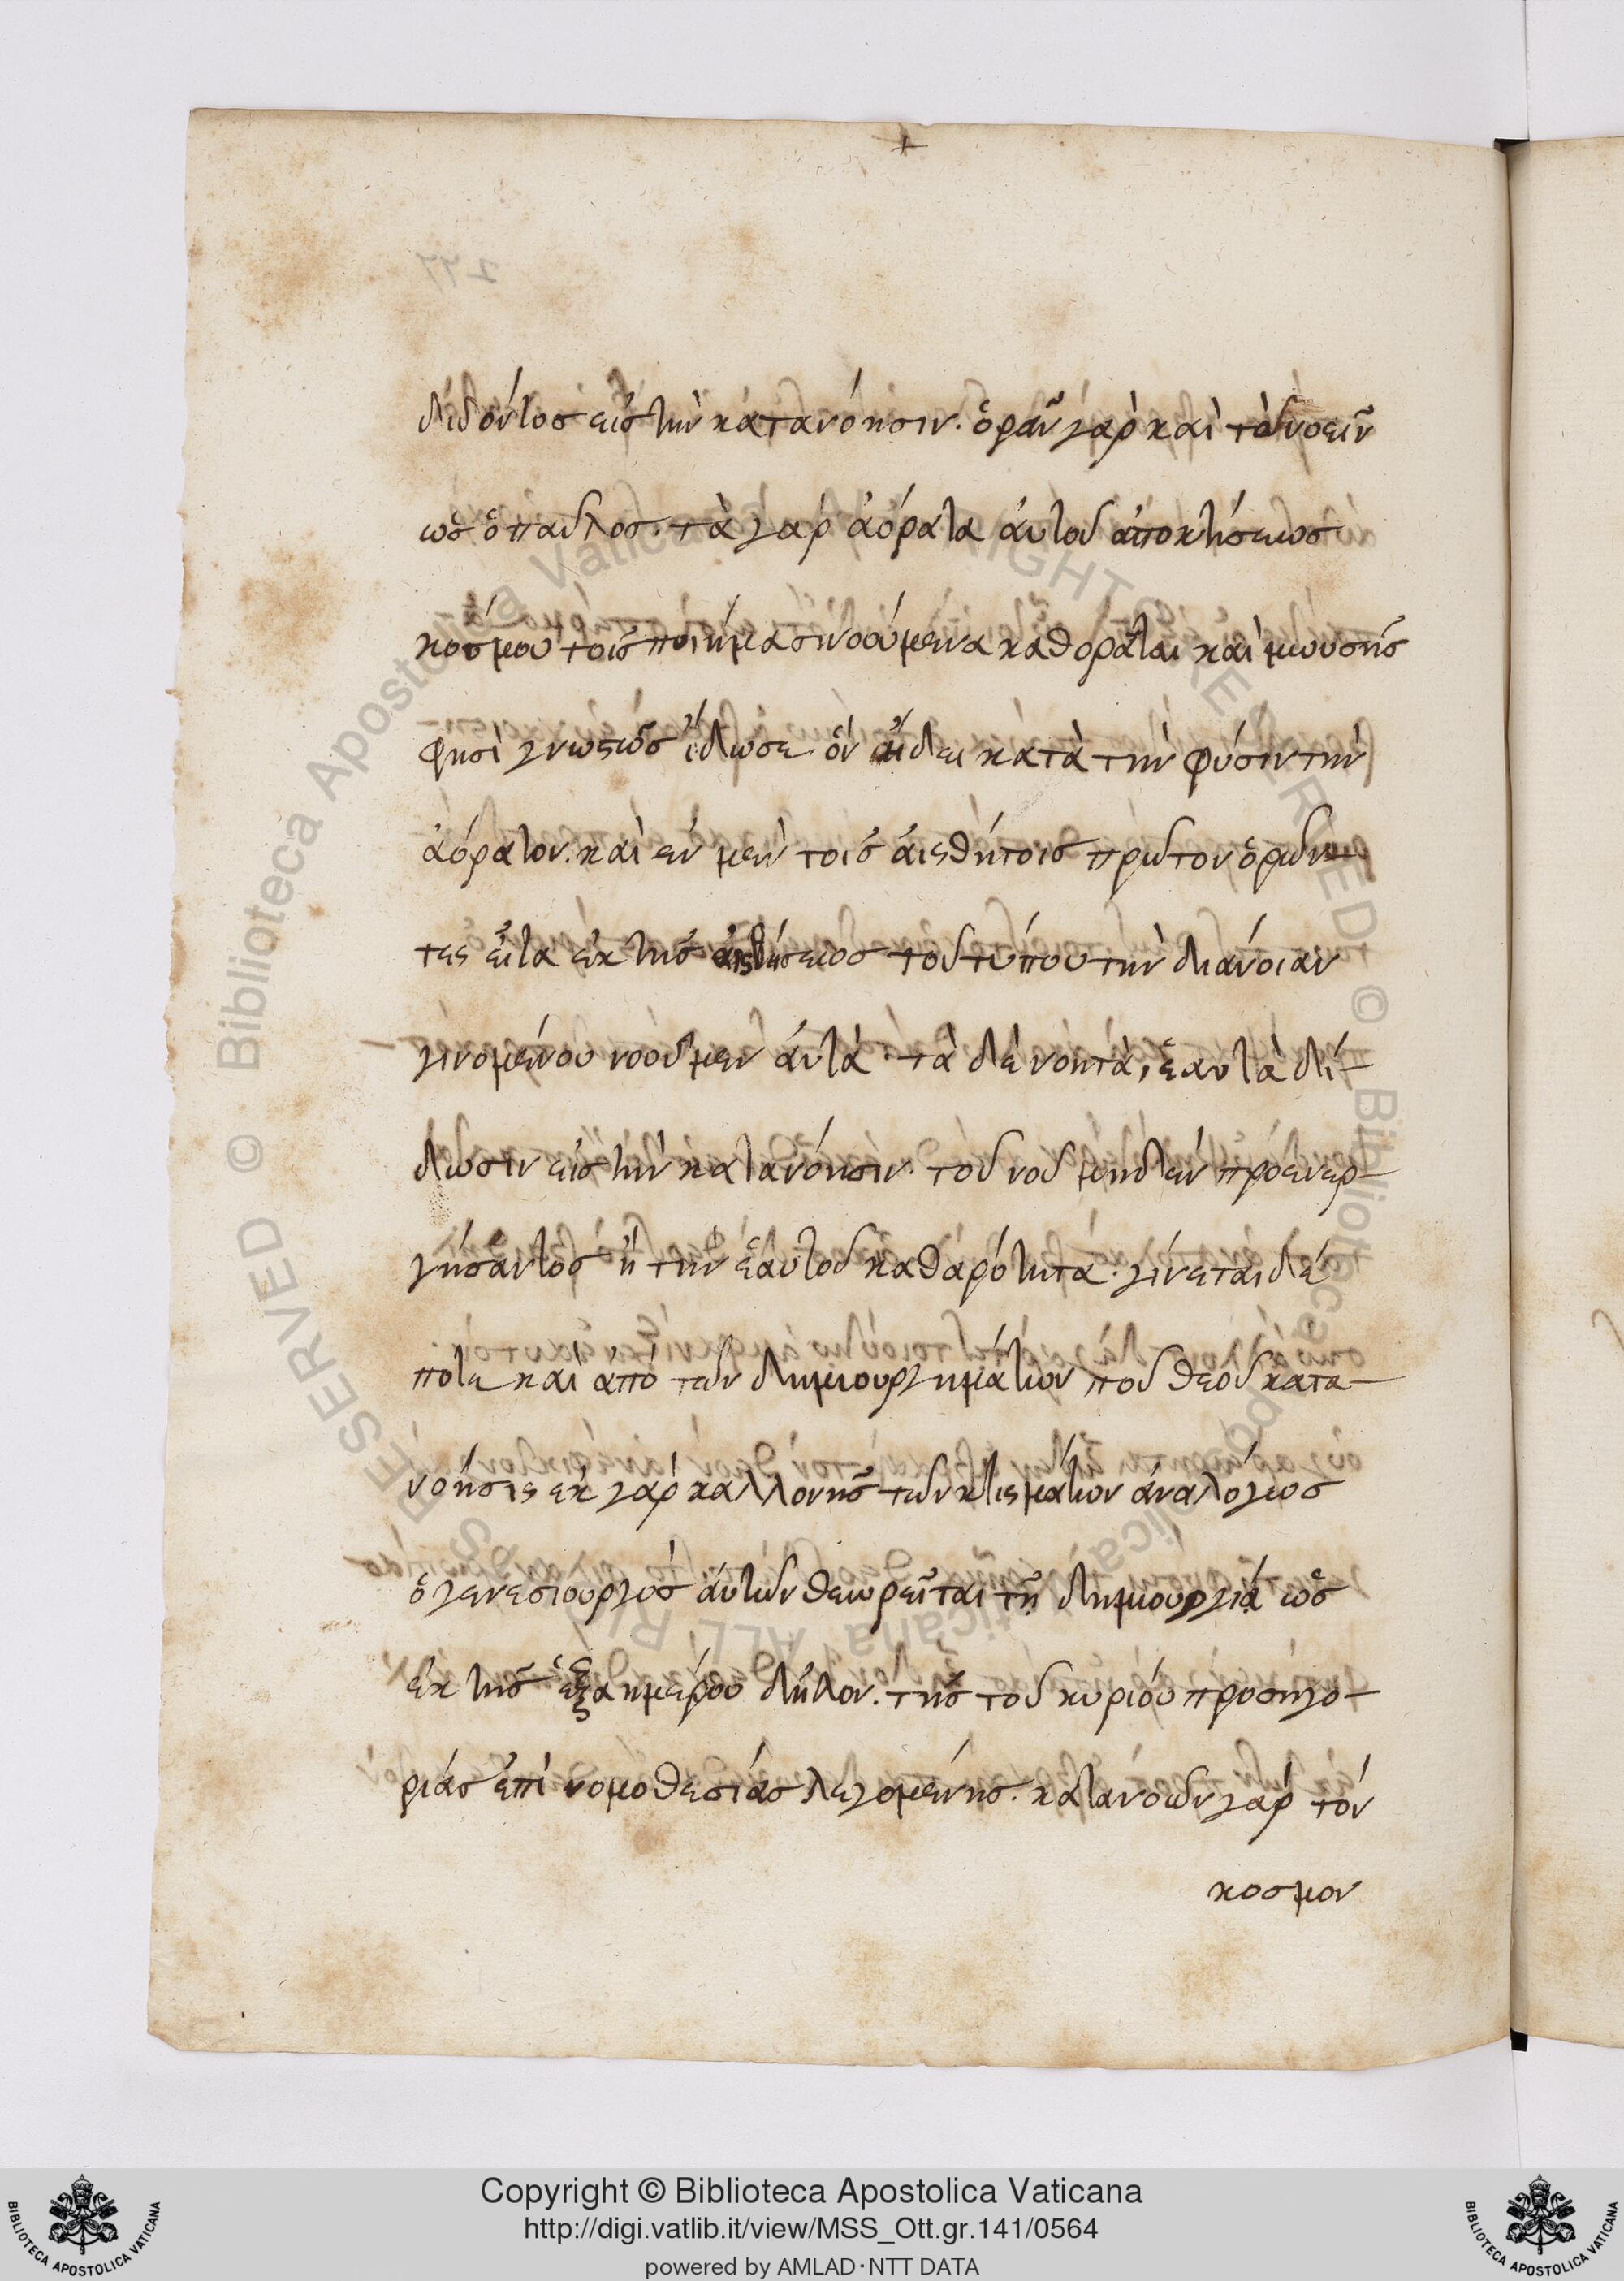 διδόντος εἰς τὴν κατανόησιν. ὁρᾶν γὰρ καὶ τὸ νοεῖν
ὡς ὁ παῦλος. τὰ γὰρ ἀόρατα ἀυτοῦ ἀπο κτήσεως
κόσμου τοῖς ποιήμασι νοούμενα καθορᾶται καὶ μωυσῆς
φησὶ γνωστῶς ὃν κατὰ τὴν φύσιν τὴν
ἀόρατον. καὶ ἐν μὲν τοῖς ἀισθήτοις πρῶτον ὁρῶν-
τες εἶτα ἐκ τῆς ἀισθήσεως τοῦ τύπου τὴν διάνοιαν
γινομένου νοοῦμεν ἀυτά. τὰ δὲ νοητὰ, ἑαυτὰ δί-
δωσιν εἰς τὴν κατανόησιν. τοῦ νοῦ μηδὲν προενερ-
γήσαντος ἢ τὴν ἑαυτοῦ καθαρότητα. γίνεται δέ
ποτε καὶ ἀπὸ τῶν δημιουργημάτων τοῦ θεοῦ κατα-
νόησις ἐκ γὰρ καλλονῆς τῶν κτισμάτων ἀναλόγως
ὁ γενεσιουργὸς ἀυτῶν θεωρεῖται τῇ δημιουργίᾳ ὡς
ἐκ τῆς ἑξαημέρου δῆλον. τῆς τοῦ κυρίου προσηγο-
ρίας ἐπὶ νομοθεσίας λεγομένης. κατανοῶν γὰρ τὸν
κοσμον
Copyright © Biblioteca Apostolica Vaticana
http://digi.vatlib.it/view/MSS_Ott.gr.141/0564
powered by AMLAD·NTT DATA